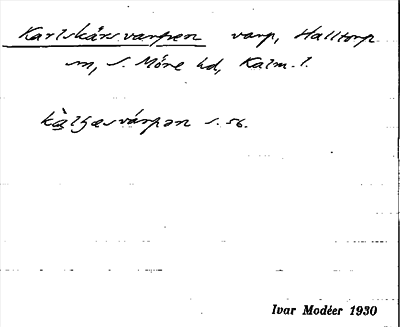 Karlskärsvarpen varp, Halltorp
sn, S. Möre hd, Kalm. l.
s. 56.
Ivar Modéer 1930